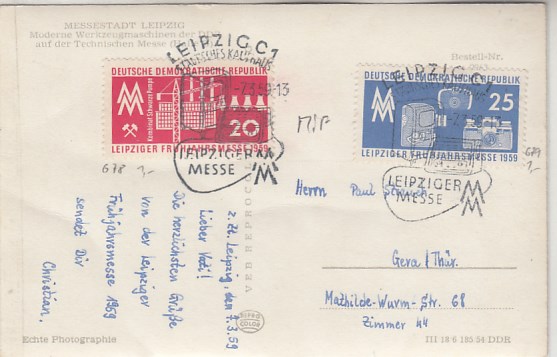 MESSESTADT LEIPZIG
Moderne Werkzeugmaschinen der DDR
auf der Technischen Messe
Bestell-Nr.
LEIPZIG C1
DEUTSCHE DEMOKRATISCHE REPUBLIK
MM
Kombinat Schwarze Pumpe
20
LEIPZIGER FRÜHJAHRSMESSE 1959
-7.3.59-13
LEIPZIGER
MESSE
MM
LEIPZIG C1
DEUTSCHE DEMOKRATISCHE REPUBLIK
MM
25
LEIPZIGER FRÜHJAHRSMESSE 1959
LEIPZIGER
MESSE
MM
678
679
M/P
z. Zt. Leipzig, den 7.3.59
Lieber Vati!
Die herzlichsten Grüße
von der Leipziger
Frühjahrsmesse 1959
sendet Dir
Christian.
VEB REPROCOLOR
REPRO
COLOR
Herrn Paul
Gera/Thür.
Mathilde-Wurm-Str. 68
Zimmer 44
Echte Photographie
III 18 6 185 54 DDR